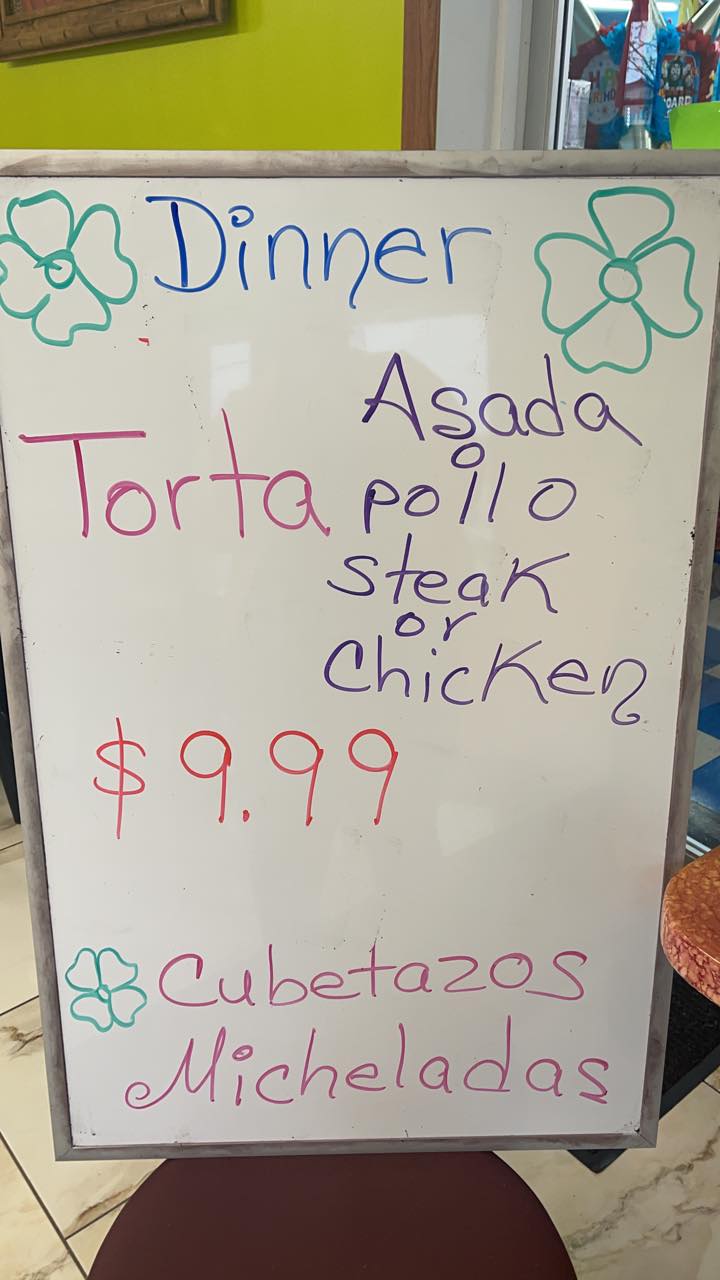 Dinner
Asada
o
Torta pollo
steak
or
Chicken
$9.99
Cubetazos
Micheladas